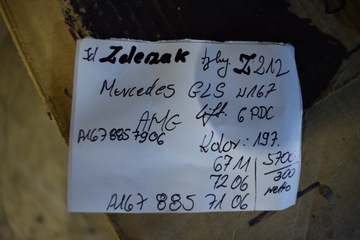 Zderzak tylny Z212
Mercedes GLS W167
AMG lift. 6 PDC
A167 885 7906
Kolor: 197.
6711
7206
5700/
300
netto
A167 885 71 06